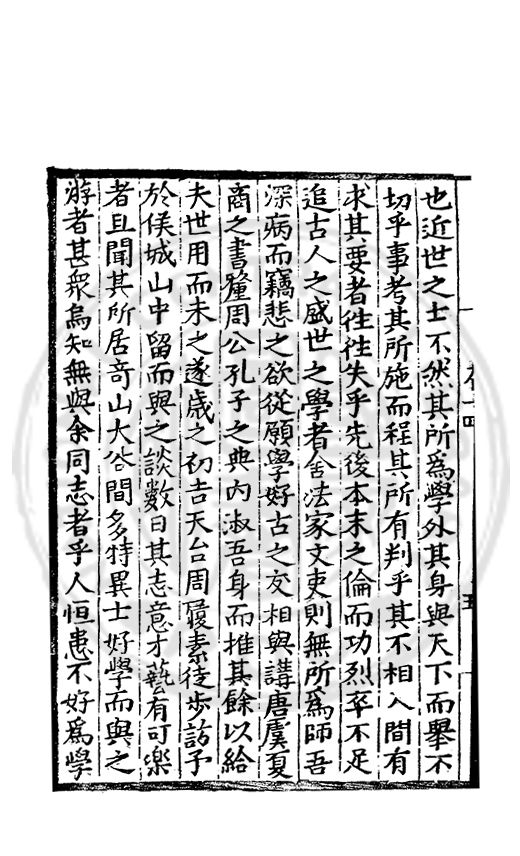 也近世之士不然其所爲學外其身與天下而舉不
切乎事考其所施而程其所有判乎其不相入間有
求其要者徃徃失乎先後本末之倫而功烈卒不足
追古人之盛世之學者舍法家文吏則無所爲師吾
深病而竊悲之欲從願學好古之交相與講唐虞夏
商之書釐周公孔子之典內淑吾身而推其餘以給
夫世用而未之遂歲之初吉天台周履素徒步訪予
於侯城山中留而與之談數日其志意才藝有可樂
者且聞其所居奇山大谷間多特異士好學而與之
游者甚衆烏知無與余同志者乎人恒患不好爲學